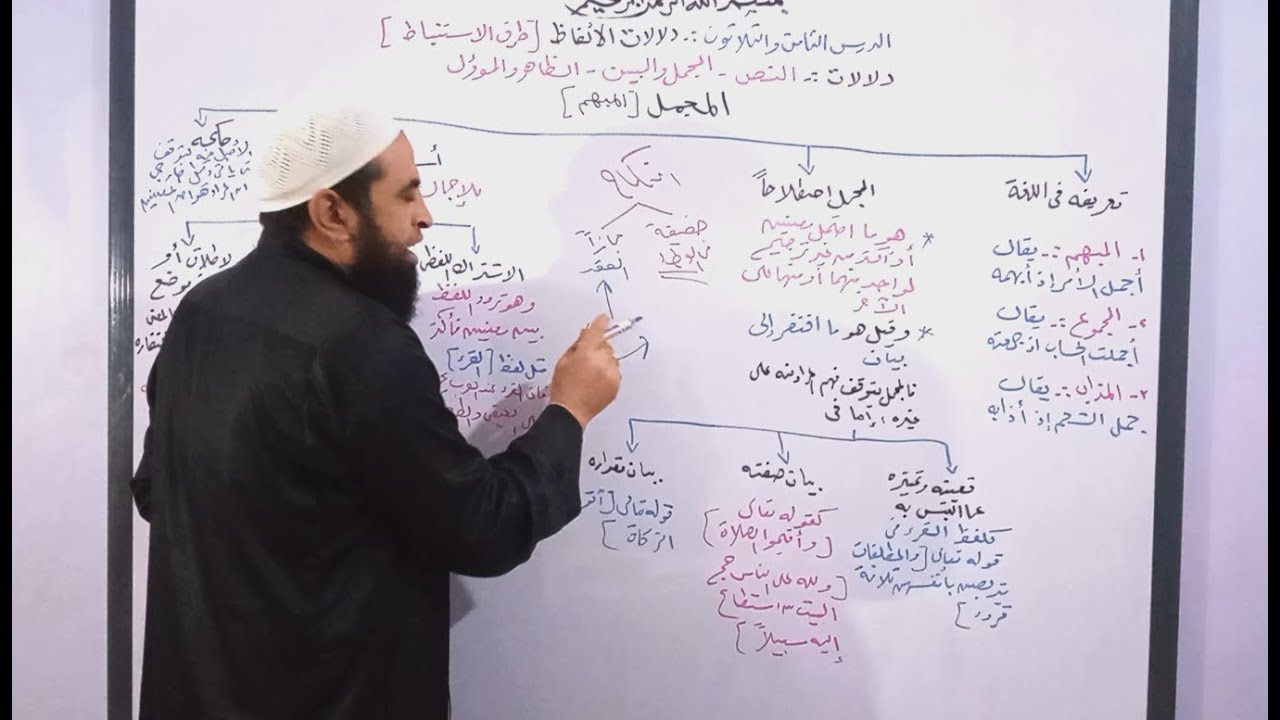 بسم الله الرحمن الرحيم
الدرس الثامن والثلاثون :- دلالات الألفاظ [طرق الاستنباط]
دلالات :- النص - المجمل والمبين - الظاهر والمؤول
المجمل [المبهم]
تعريفه في اللغة
١- المبهم :- يقال
أجمل الأمر إذ أبهمه
٢- المجموع :- يقال
أجملت الحساب إذ جمعته
٣- المذاب :- يقال
جمل الشحم إذ أذابه
المجمل اصطلاحاً
* هو ما احتمل معنيين
أو أكثر من غير ترجيح
لواحد منهما أو منها على
الآخر
* وقيل هو ما افتقر إلى
بيان
فالمجمل يتوقف فهم المراد منه على
غيره ، إما في
تعيينه وتميزه
عما التبس به
كلفظ القرء في
قوله تعالى [والمطلقات
يتربصن بأنفسهن ثلاثة
قروء]
بيان صفته
كقوله تعالى
[وأقيموا الصلاة]
[ولله على الناس حج
البيت من استطاع
إليه سبيلاً]
بيان مقداره
قوله تعالى
الزكاة]
النكاح
حقيقة
الوطء
مجازاً
العقد
للإجمال
الاشتراك اللفظي
وهو تردد اللفظ
بين معنيين فأكثر
مثل لفظ [القرء]
فإن القرء عند العرب
حكمه